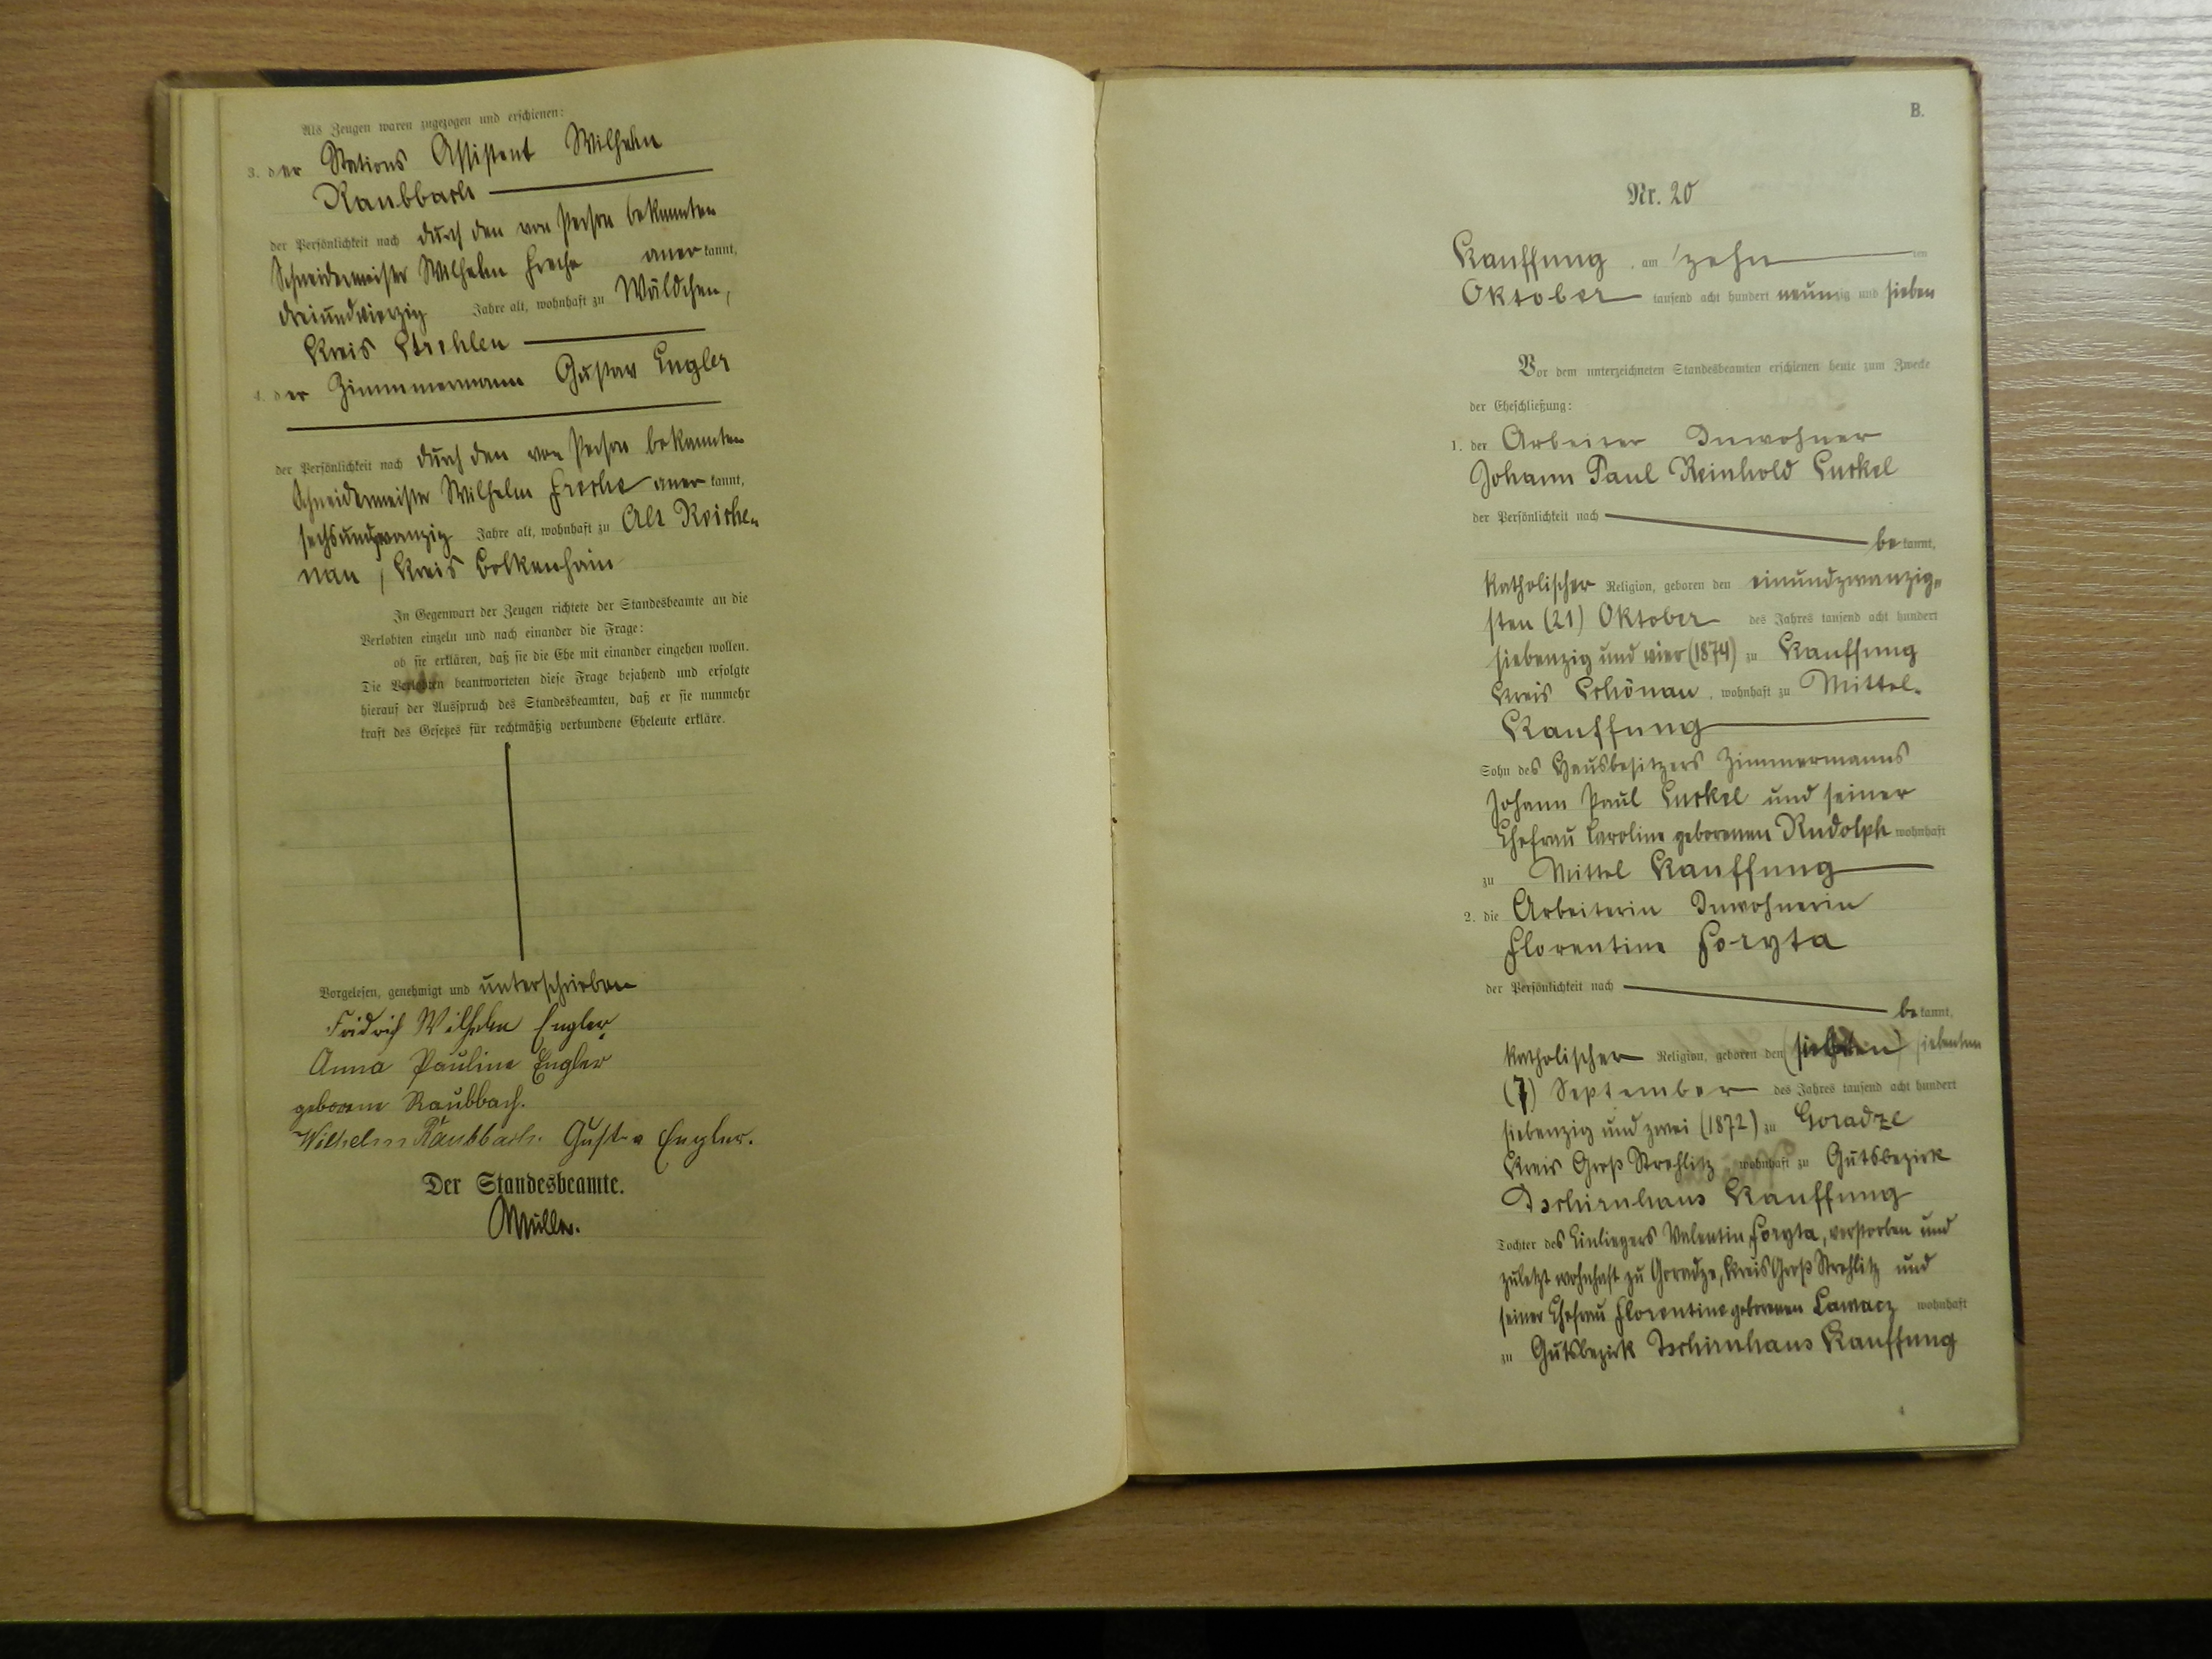 Als Zeugen waren zugezogen und erschienen:
3. der Stations Assistent Wilhelm
Raubbach
der Persönlichkeit nach durch den von Person bekannten
Schneidermeister Wilhelm Freche anerkannt,
dreiundvierzig Jahre alt, wohnhaft zu Wäldchen,
Kreis Strehlen
4. der Zimmermann Gustav Engler
der Persönlichkeit nach durch den von Person bekannten
Schneidermeister Wilhelm Freche anerkannt,
sechsundzwanzig Jahre alt, wohnhaft zu Alt Reiche-
nau, Kreis Bolkenhain
In Gegenwart der Zeugen richtete der Standesbeamte an die
Verlobten einzeln und nach einander die Frage:
ob sie erklären, daß sie die Ehe mit einander eingehen wollen.
Die Verlobten beantworteten diese Frage bejahend und erfolgte
hierauf der Ausspruch des Standesbeamten, daß er sie nunmehr
kraft des Gesetzes für rechtmäßig verbundene Eheleute erkläre.
Vorgelesen, genehmigt und unterschrieben
Fridrich Wilhelm Engler
Anna Pauline Engler
geborene Raubbach.
Wilhelm Raubbach. Gustav Engler.
Der Standesbeamte.
Müller.
B.
Nr. 20
Kauffung, am zehn ten
Oktober tausend acht hundert neunzig und sieben
Vor dem unterzeichneten Standesbeamten erschienen heute zum Zwecke
der Eheschließung:
1. der Arbeiter Inwohner
Johann Paul Reinhold
der Persönlichkeit nach
bekannt,
katholischer Religion, geboren den einundzwanzig-
sten (21) Oktober des Jahres tausend acht hundert
siebenzig und vier (1874) zu Kauffung
Kreis Schönau, wohnhaft zu Mittel-
Kauffung
Sohn des Hausbesitzers Zimmermanns
Johann Paul und seiner
Ehefrau Caroline geborenen Rudolph wohnhaft
zu Mittel Kauffung
2. die Arbeiterin Inwohnerin
Florentine Foryta
der Persönlichkeit nach
bekannt,
katholischer Religion, geboren den (siebten) siebenten
(7) September des Jahres tausend acht hundert
siebenzig und zwei (1872) zu Goradze
Kreis Groß Strehlitz wohnhaft zu Gutsbezirk
Tschirnhaus Kauffung
Tochter des Einliegers Valentin Foryta, verstorben und
zuletzt wohnhaft zu Goradze, Kreis Groß Strehlitz und
seiner Ehefrau Florentine geborenen Lawacz wohnhaft
zu Gutsbezirk Tschirnhaus Kauffung
4